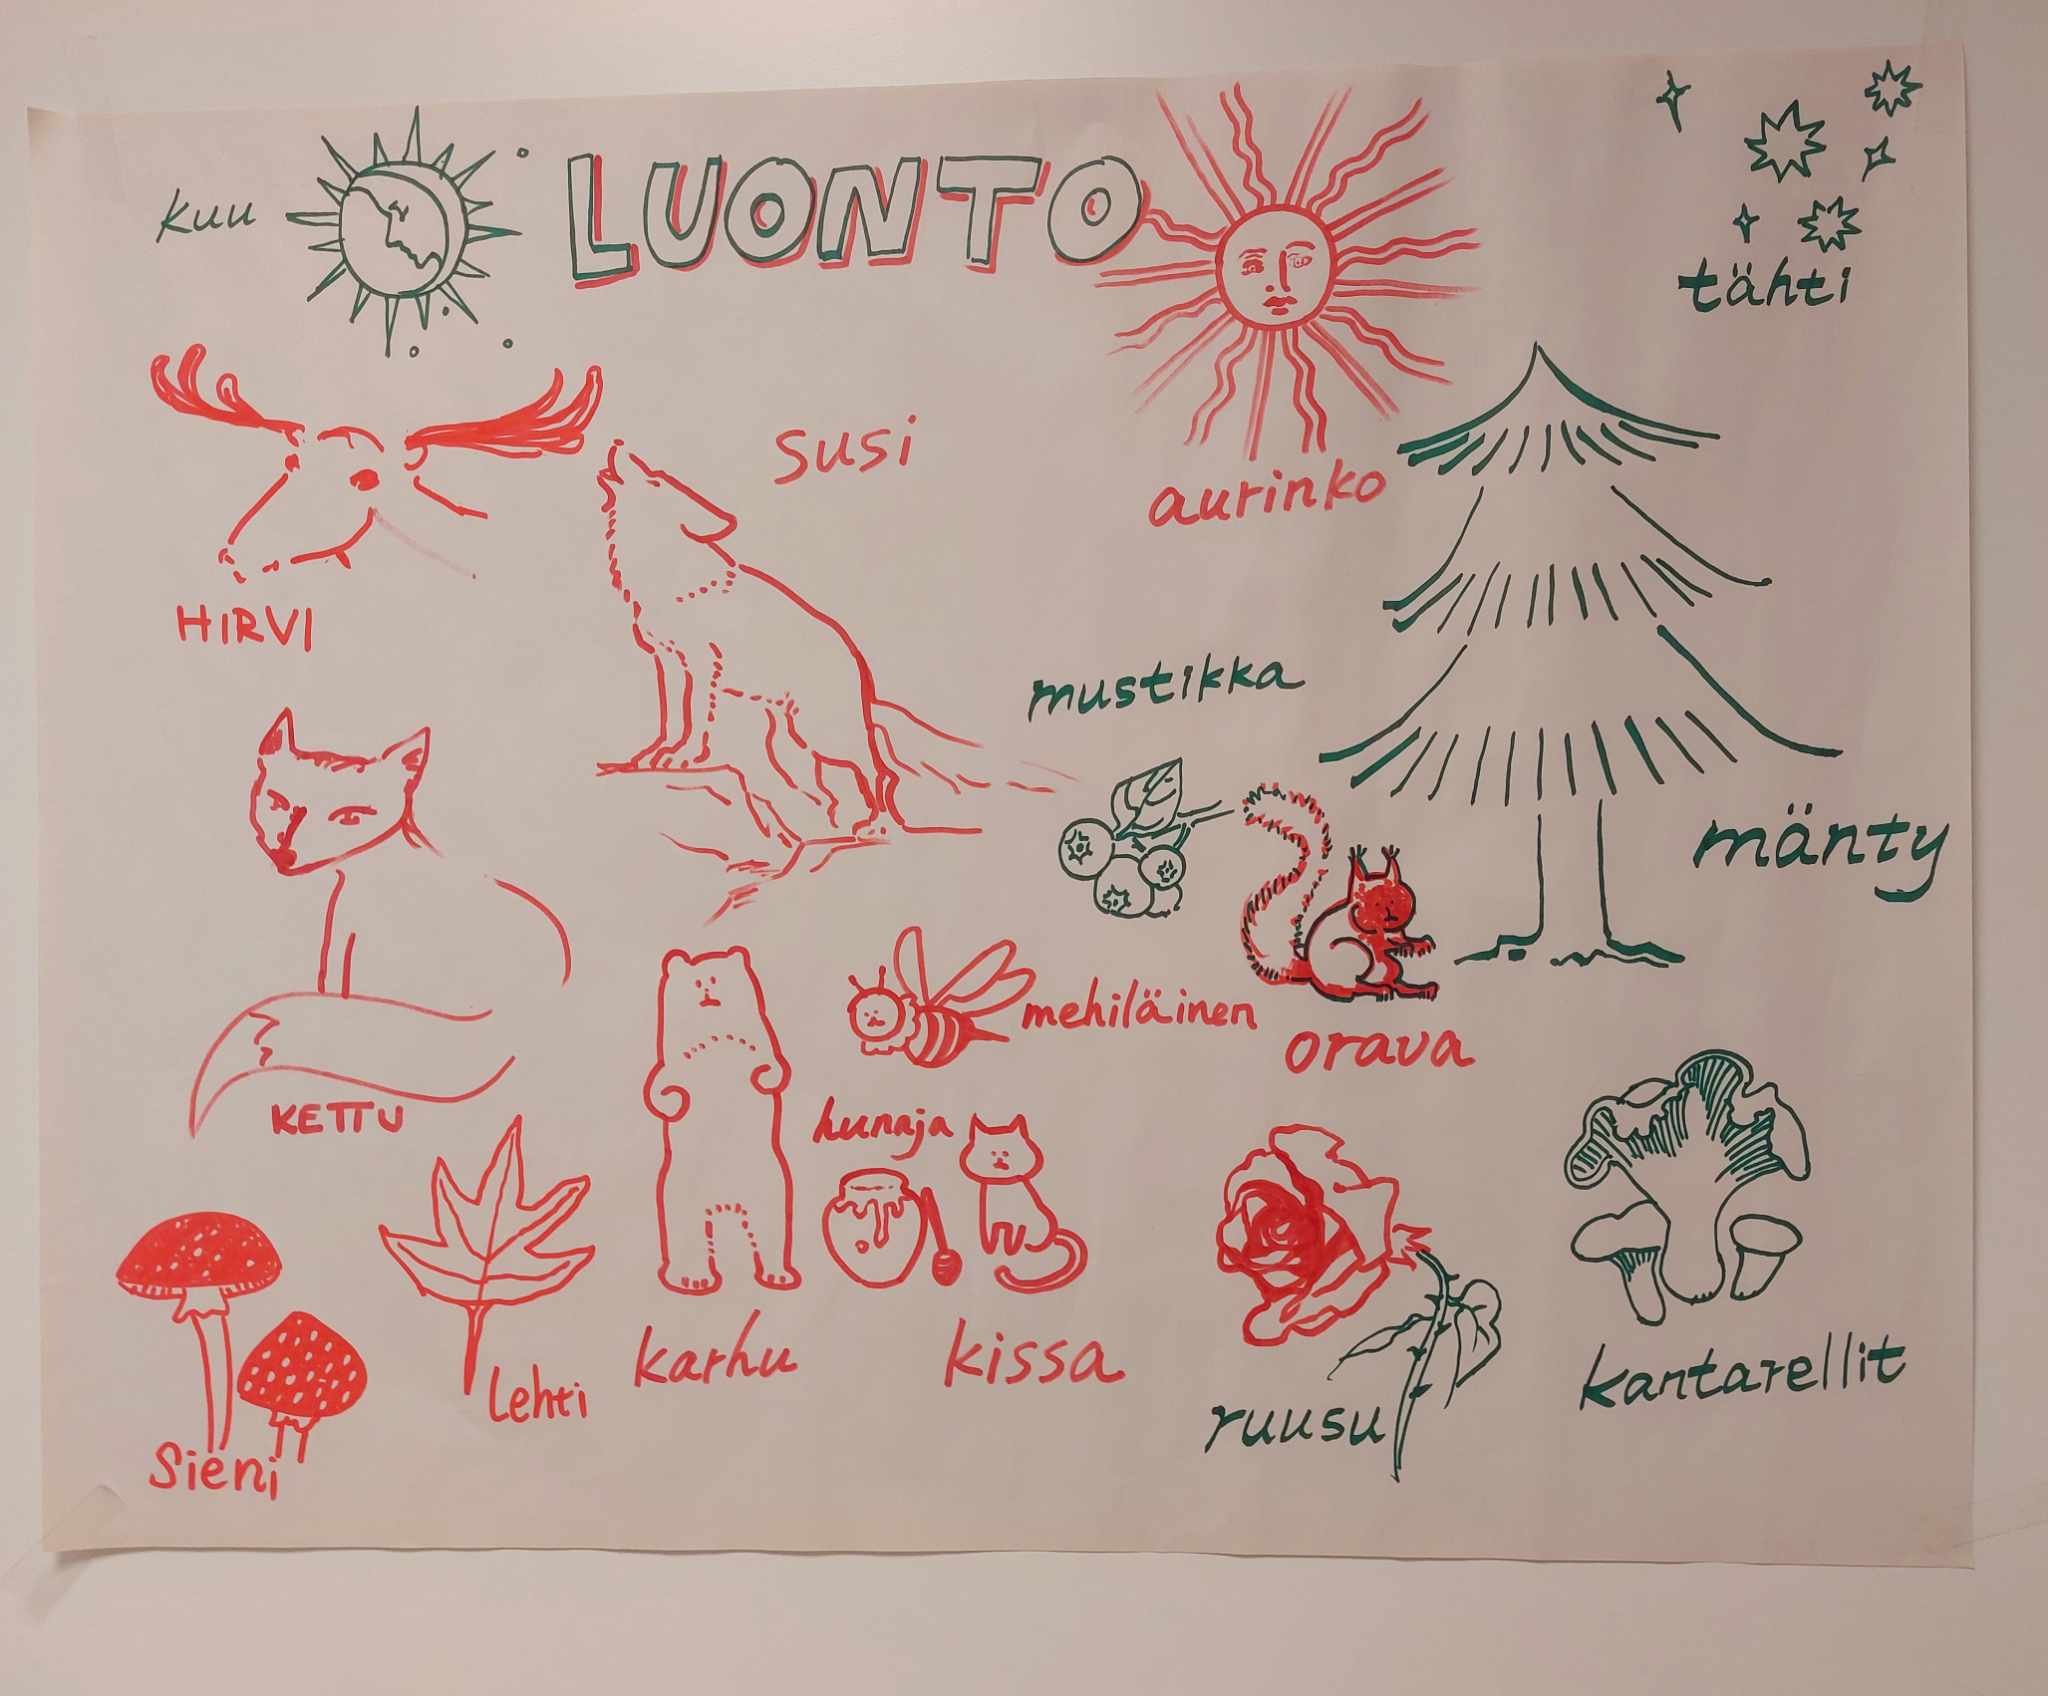 kuu
LUONTO
tähti
susi
aurinko
HIRVI
mustikka
mänty
mehiläinen
orava
KETTU
hunaja
karhu
kissa
Lehti
ruusu
kantarellit
Sieni